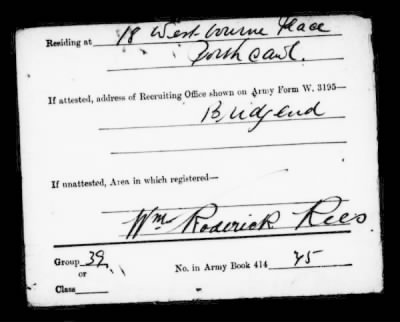 Residing at 18 Westbourne Place
Porthcawl.
If attested, address of Recruiting Office shown on Army Form W. 3195—
Bridgend
If unattested, Area in which registered—
Wm Roderick Rees
Group 39
or
No. in Army Book 414 45
Class